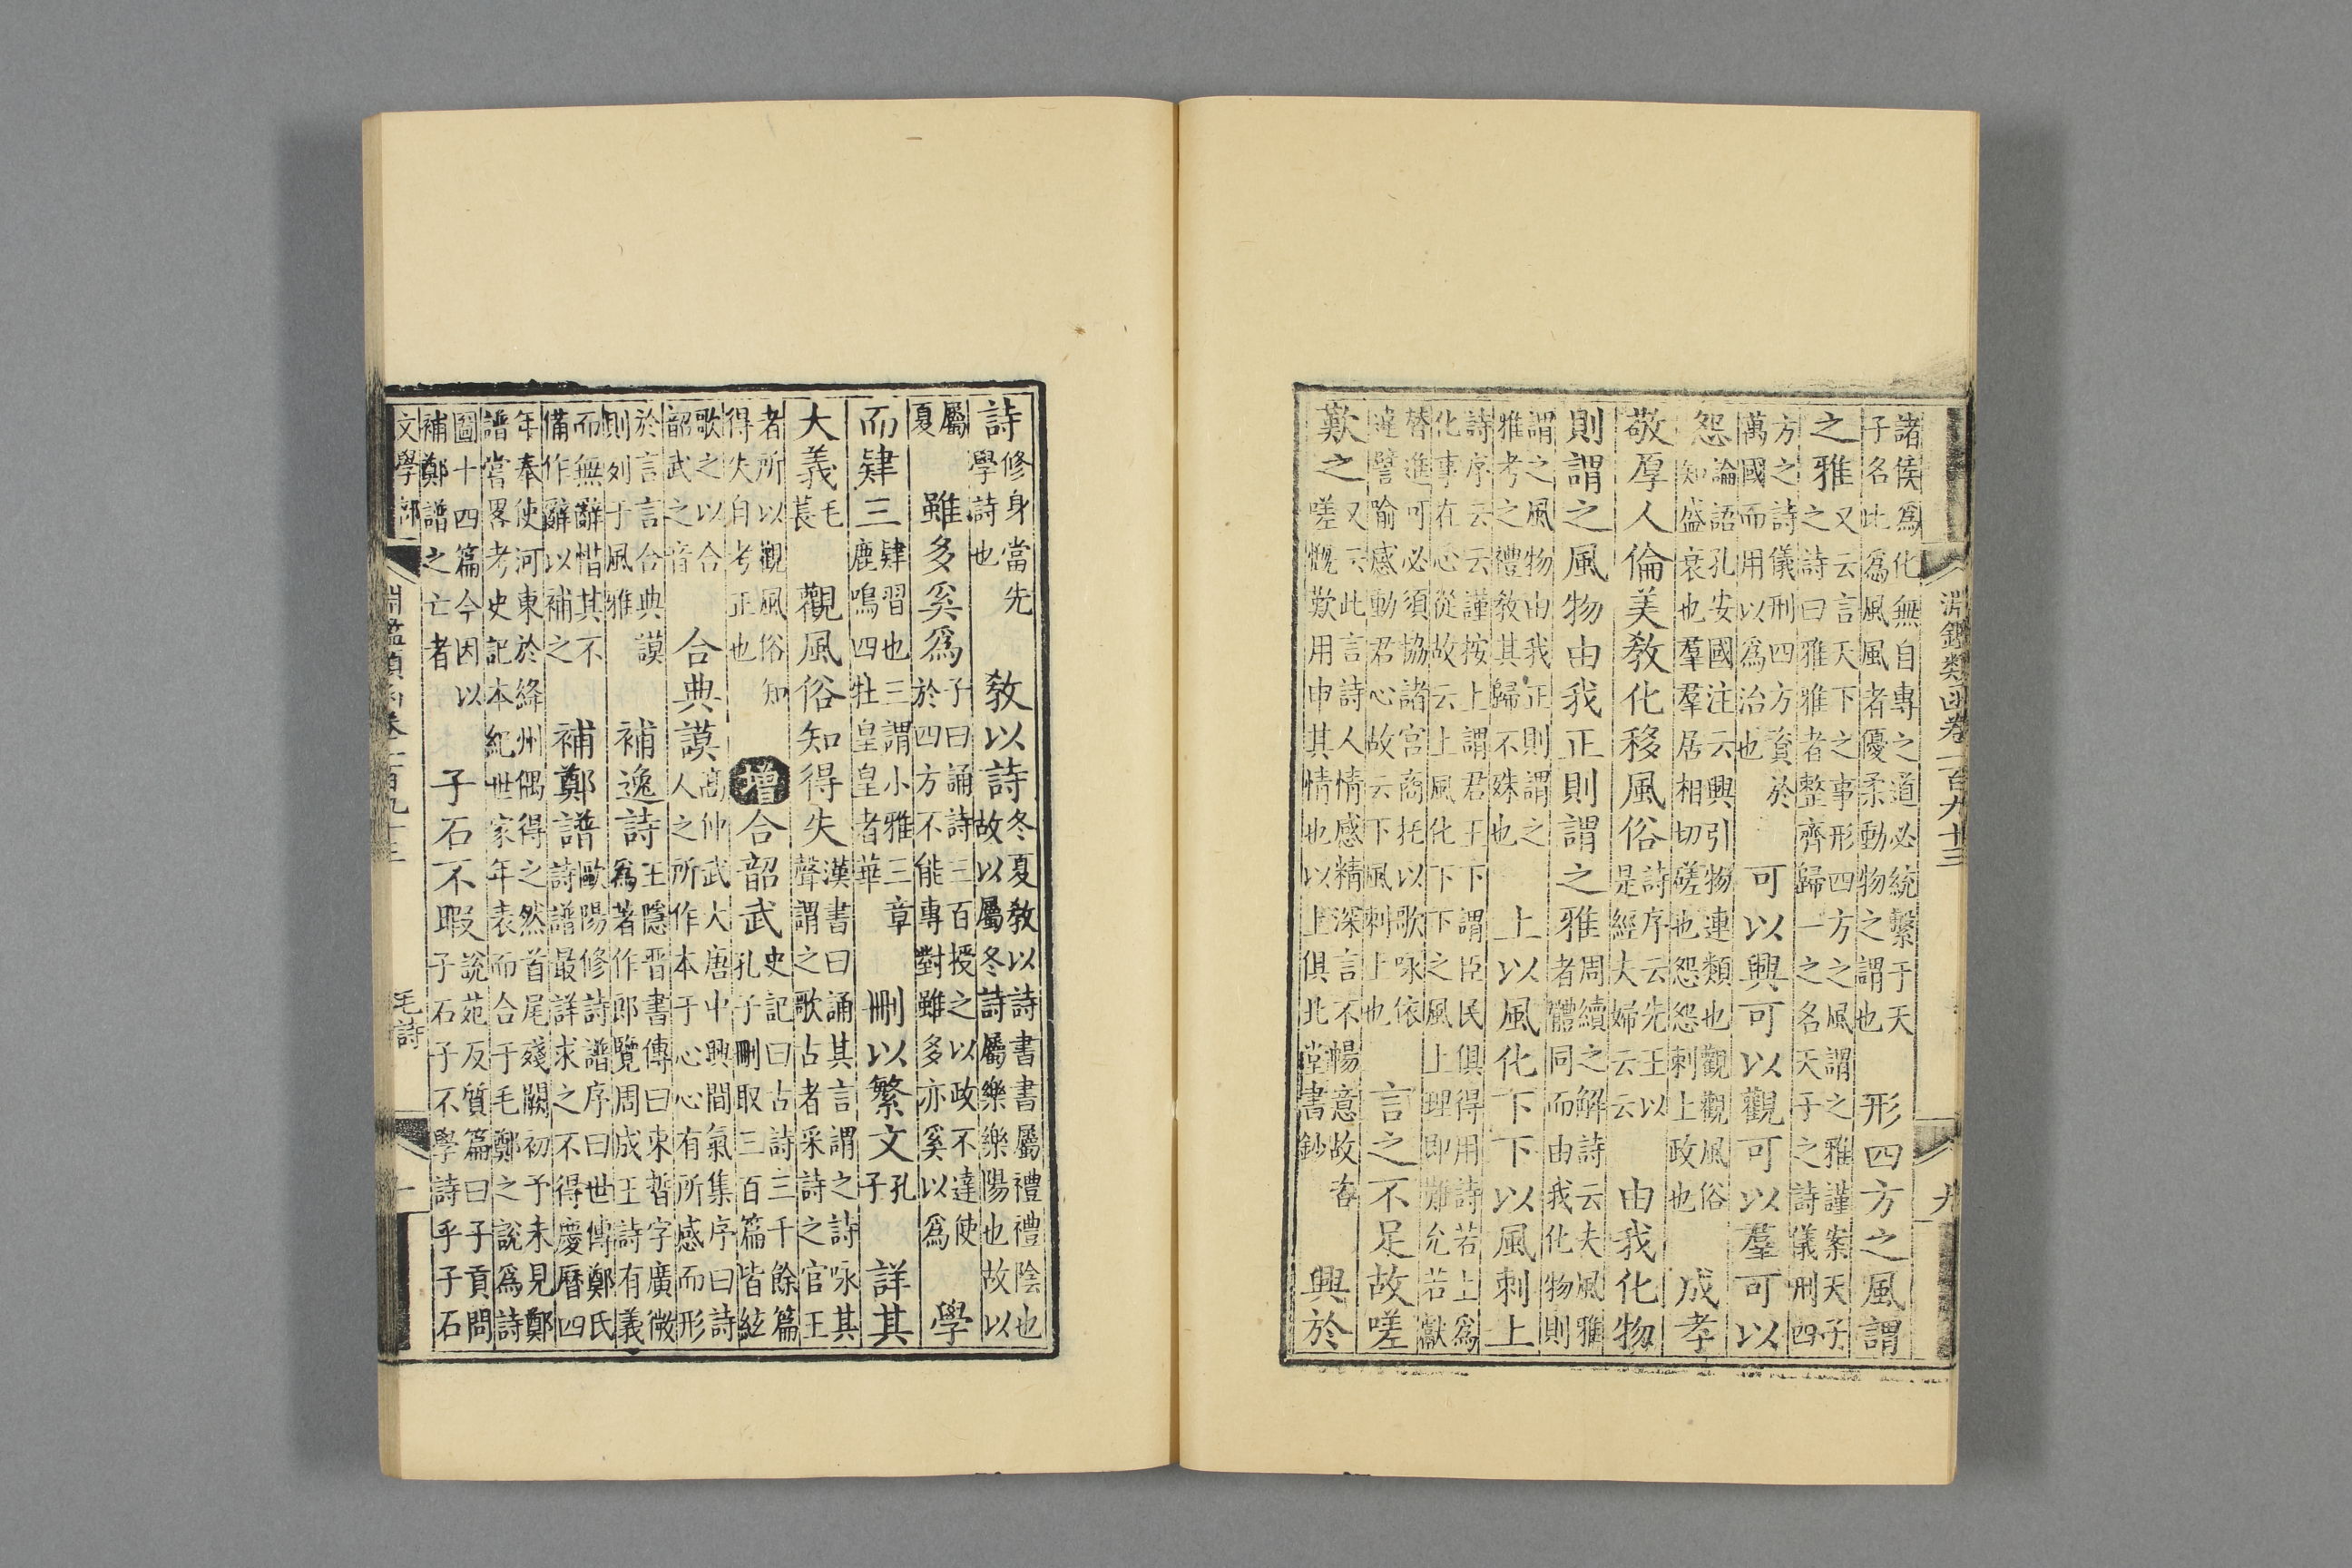 諸侯爲化無自專之道必統繫于天
子名此爲風風者優柔動物之謂也
形四方之風謂
之雅
又云言天下之事形四方之風謂之雅謹案天子
之詩曰雅雅者整齊歸一之名天子之詩儀刑四
方之詩儀刑四方資於
萬國而用以爲治也
可以興可以觀可以羣可以
怨
論語孔安國注云興引物連類也觀觀風俗
知盛衰也羣羣居相切磋也怨怨刺上政也
成孝
敬厚人倫美教化移風俗
詩序云先王以
是經夫婦云云
由我化物
則謂之風物由我正則謂之雅
周續之解詩云夫風雅
者體同而由我化物則
謂之風物由我正則謂之
雅考之禮教其歸不殊也
上以風化下下以風刺上
詩序云云謹按上謂君王下謂臣民俱得用詩若上爲
化事在心從故云上風化下下之風上理即難允若獻
替進可必須協諸宮商托以歌咏依
違譬喻感動君心故云下風刺上也
言之不足故嗟
歎之
又云此言詩人情感精深言不暢意故咨
嗟慨歎用申其情也以上俱北堂書鈔
興於
詩
修身當先
學詩也
教以詩
冬夏教以詩書書屬禮禮陰也
故以屬冬詩屬樂樂陽也故以
屬
夏
雖多奚爲
子曰誦詩三百授之以政不達使
於四方不能專對雖多亦奚以爲
學
而肄三
肄習也三謂小雅三章
鹿鳴四牡皇皇者華
刪以繁文
孔
子
詳其
大義
毛
萇
觀風俗知得失
漢書曰誦其言謂之詩咏其
聲謂之歌古者采詩之官王
者所以觀風俗知
得失自考正也
增
合韶武
史記曰古詩三千餘篇
孔子刪取三百篇皆絃
歌之以合
韶武之音
合典謨
高仲武大唐中興間氣集序曰詩
人之所作本于心心有所感而形
於言言合典謨
則列于風雅
補逸詩
王隱晉書傳曰束晳字廣微
爲著作郎覽周成王詩有義
而無辭惜其不
備作辭以補之
補鄭譜
歐陽修詩譜序曰世傳鄭氏
詩譜最詳求之不得慶曆四
年奉使河東於絳州偶得之然首尾殘闕初予未見鄭
譜嘗畧考史記本紀世家年表而合于毛鄭之說爲詩
圖十四篇今因以
補鄭譜之亡者
子石不暇
說苑反質篇曰子貢問
子石子不學詩乎子石
淵鑑類函卷一百九十三
九
毛詩
文學部